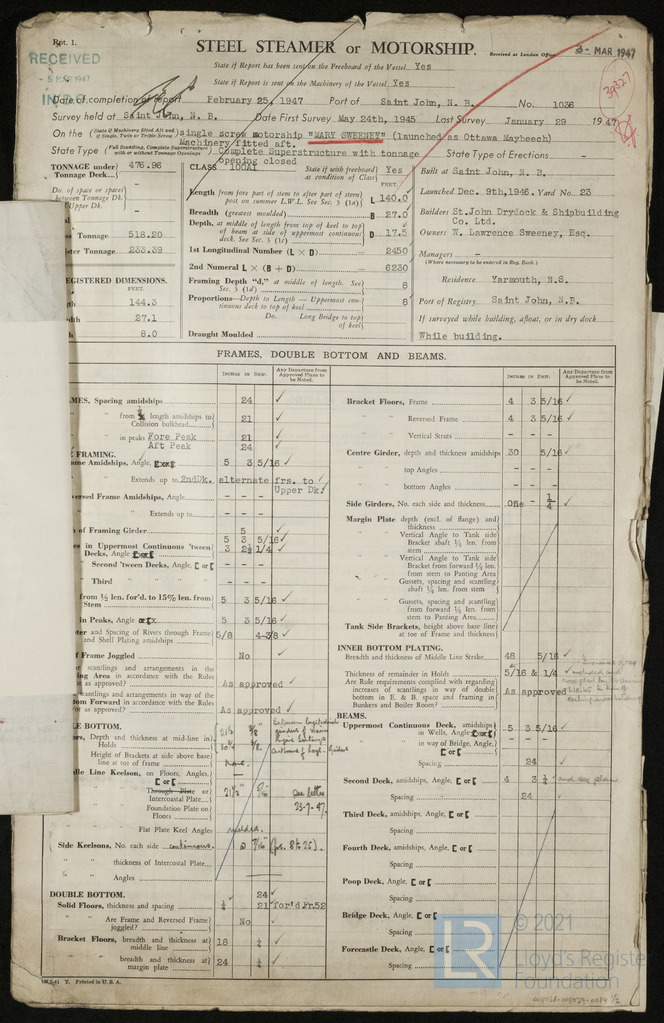 Rpt. 1.
STEEL STEAMER or MOTORSHIP.
Received at London Office
5- MAR 1947
RECEIVED
- 5 MAR 1947
State if Report has been sent on the Freeboard of the Vessel Yes
State if Report is sent on the Machinery of the Vessel Yes
39327
Date of completion of report February 25, 1947 Port of Saint John, N. B. No. 1036
Survey held at Saint John, N. B. Date First Survey May 24th, 1945 Last Survey January 29 1947
On the (State if Machinery fitted Aft and if Single, Twin or Triple Screw) single screw motorship "MARY SWEENEY" (launched as Ottawa Maybeech)
Machinery fitted aft.
State Type (Full Scantling, Complete Superstructure with or without Tonnage Openings) Complete Superstructure with tonnage opening closed
State Type of Erections -
TONNAGE under Tonnage Deck 476.96
Do. of space or spaces between Tonnage Dk. Upper Dk. -
Tonnage 518.20
ster Tonnage 233.39
EGISTERED DIMENSIONS.
FEET.
gth 144.3
dth 27.1
h 8.0
CLASS 100A1
State if with freeboard as condition of Class Yes
FEET
Length from fore part of stem to after part of stern post on summer L.W.L. See Sec. 3 (1a) L 140.0
Breadth (greatest moulded) B 27.0
Depth, at middle of length from top of keel to top of beam at side of uppermost continuous deck. See Sec. 3 (1c) D 17.5
1st Longitudinal Number (L × D) 2450
2nd Numeral L × (B + D) 6230
Framing Depth "d," at middle of length. See Sec. 3 (1d) 8
Proportions—Depth to Length—Uppermost continuous deck to top of keel 8
Do. Long Bridge to top of keel
Draught Moulded
Built at Saint John, N. B.
Launched Dec. 9th 1946. Yard No. 23
Builders St.John Drydock & Shipbuilding Co. Ltd.
Owners W. Lawrence Sweeney, Esq.
Managers -
(Where necessary to be entered in Reg. Book.)
Residence Yarmouth, N.S.
Port of Registry Saint John, N.B.
If surveyed while building, afloat, or in dry dock
While building.
FRAMES, DOUBLE BOTTOM AND BEAMS.
INCHES IN SHIP.
Any Departure from Approved Plans to be Noted.
MES, Spacing amidships 24 ✓
" from ⅗ length amidships to Collision bulkhead 21 ✓
" in peaks Fore Peak 21 ✓
Aft Peak 24 ✓
FRAMING.
ame Amidships, Angle, 5 3 5/16 ✓
" Extends up to 2ndDk. alternate frs. to Upper Dk. ✓
versed Frame Amidships, Angle - - -
" Extends up to
of Framing Girder 5 ✓
es in Uppermost Continuous 'tween Decks, Angle 5 3 5/16 ✓
3 2½ 1/4 ✓
" Second 'tween Decks, Angle, [ or [ - - -
" Third " " " - - -
from ½ len. for'd. to 15% len. from Stem 5 3 5/16 ✓
in Peaks, Angle or [ 5 3 5/16 ✓
ter and Spacing of Rivets through Frame and Shell Plating amidships 5/8 4-3/8 ✓
f Frame Joggled No ✓
scantlings and arrangements in the ing Area in accordance with the Rules as approved? As approved ✓
scantlings and arrangements in way of the tom Forward in accordance with Rules or as approved? As approved ✓
LE BOTTOM.
rs, Depth and thickness at mid-line in Holds
Height of Brackets at side above base line at toe of frame None.
dle Line Keelson, on Floors, Angles, [ or [
Through Plate or Intercoastal Plate 21½" 5/16" see letter
Foundation Plate on Floors 23-7-47.
Flat Plate Keel Angles welded.
Side Keelsons, No. each side continuous. 2 7/16" (frs. 8 to 25).
" " thickness of Intercostal Plate
" " Angles
DOUBLE BOTTOM.
Solid Floors, thickness and spacing ¼ 24 ✓
21 for'd Fr.52
" Are Frame and Reversed Frame joggled? No ✓
Bracket Floors, breadth and thickness at middle line 18 ¼ ✓
" " breadth and thickness at margin plate 24 ¼ ✓
T. Printed in U. S. A.
INCHES IN SHIP.
Any Departure from Approved Plans to be Noted.
Bracket Floors, Frame 4 3 5/16 ✓
" " Reversed Frame 4 3 5/16 ✓
" " Vertical Struts - - -
Centre Girder, depth and thickness amidships 30 5/16 ✓
" " top Angles - - -
" " bottom Angles - - -
Side Girders, No. each side and thickness One - 1/4 ✓
Margin Plate depth (excl. of flange) and thickness
" " Vertical Angle to Tank side Bracket abaft ¼ len. from stem
" " Vertical Angle to Tank side Bracket from forward ¼ len. from stem to Panting Area
" " Gussets, spacing and scantling abaft ¼ len. from stem
" " Gussets, spacing and scantling from forward ¼ len. from stem to Panting Area
Tank Side Brackets, height above base line at toe of Frame and thickness
INNER BOTTOM PLATING.
Breadth and thickness of Middle Line Strake 48 5/16 ✓
Thickness of remainder in Holds 5/16 & 1/4 ✓
Are Rule requirements complied with regarding increases of scantlings in way of double bottom in E. & B. space and framing in Bunkers and Boiler Room? As approved
BEAMS.
Uppermost Continuous Deck, amidships in Wells, Angle 5 3 5/16 ✓
" " in way of Bridge, Angle, [ or [ - - -
Spacing 24 ✓
Second Deck, amidships, Angle, [ or [ 4 3 ¼
Spacing 24 ✓
Third Deck, amidships, Angle, [ or [
Spacing
Fourth Deck, amidships, Angle, [ or [
Spacing
Poop Deck, Angle, [ or [
Spacing
Bridge Deck, Angle, [ or [
Spacing
Forecastle Deck, Angle, [ or [
Spacing
LR
© 2021
Lloyd's Register
Foundation